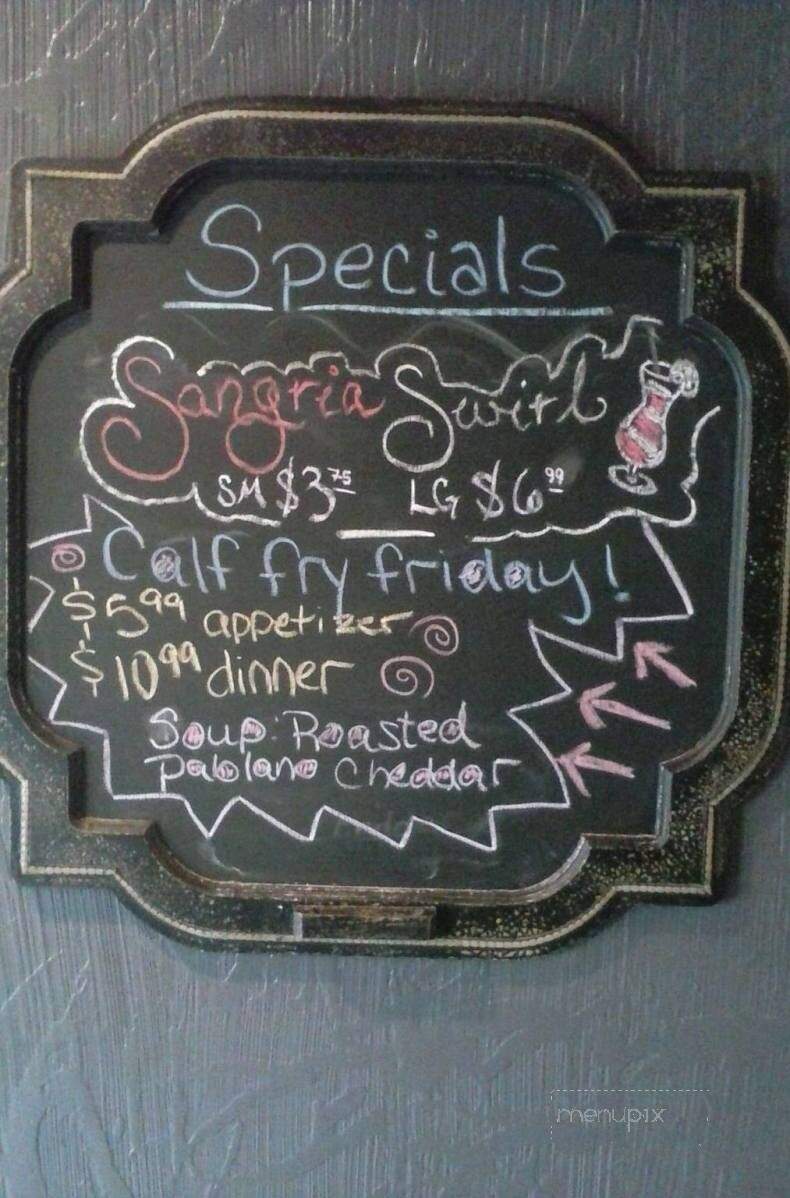 Specials
Sangria Swirl
SM $3.75 LG $6.99
Calf fry friday!
$5.99 appetizer
$10.99 dinner
Soup: Roasted
Pablano Cheddar
menupix